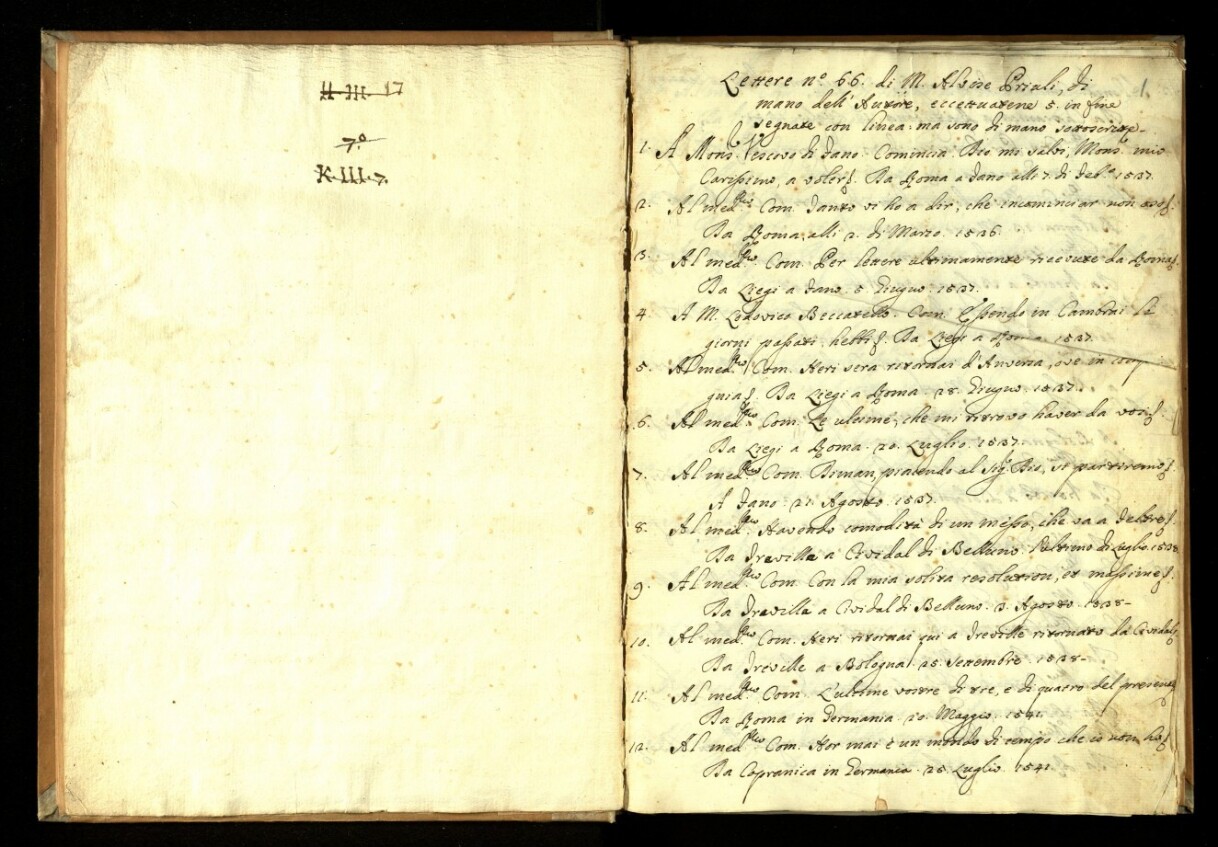 II. III. 17
7.º
K. III. 7.
1
Lettere nº 66. di M. Alvise Priuli, di
mano dell' Autore, eccettuatene 5. in fine
segnate con linea: ma sono di mano
1. A Mons.r Vescovo di Fano. Comincia. Dio mi salvi, Mons.r mio
Carissimo, a voler§. Da Roma a Fano alli 7. di Feb.o 1537.
2. Al med.mo Com. Tanto vi ho a dir, che incominciar non oso§.
Da Roma alli 2. di Marzo. 1536.
3. Al med.mo Com. Per lettere ultimamente ricevute da Roma§.
Da Liegi a Fano. 5. Giugno. 1537.
4. A M. Lodovico Beccatello. Com. Essendo in Cambrai li
giorni passati, hebbi§. Da Liegi a Roma. 1537.
5. Al med.mo Com. Heri sera ritornai d'Anversa, ove in comp
gnia§. Da Liegi a Roma. 28. Giugno. 1537.
6. Al med.mo Com. Le ultime, che mi ritrovo haver da voi§.
Da Liegi a Roma. 20. Luglio. 1537.
7. Al med.mo Com. Diman, piacendo al Sig.r Dio, si partiremo§
A Fano. 21. Agosto. 1537.
8. Al med.mo Havendo comodità di un messo, che va a Feltre§.
Da Treville a Cividal di Belluno. l'ultimo di Luglio 1538
9. Al med.mo Com. Con la mia solita resolution, et massime§.
Da Treville a Cividal di Belluno. 3. Agosto. 1538.
10. Al med.mo Com. Heri ritornai qui a Treville ritornato da Cividal§
Da Treville a Bologna. 25. Settembre. 1538.
11. Al med.mo Com. L'ultime vostre di tre, e di quatro del presente
Da Roma in Germania. 20. Maggio. 1541.
12. Al med.mo Com. Hor mai è un mondo di tempo che io non ho§
Da Capranica in Germania. 25. Luglio. 1541.